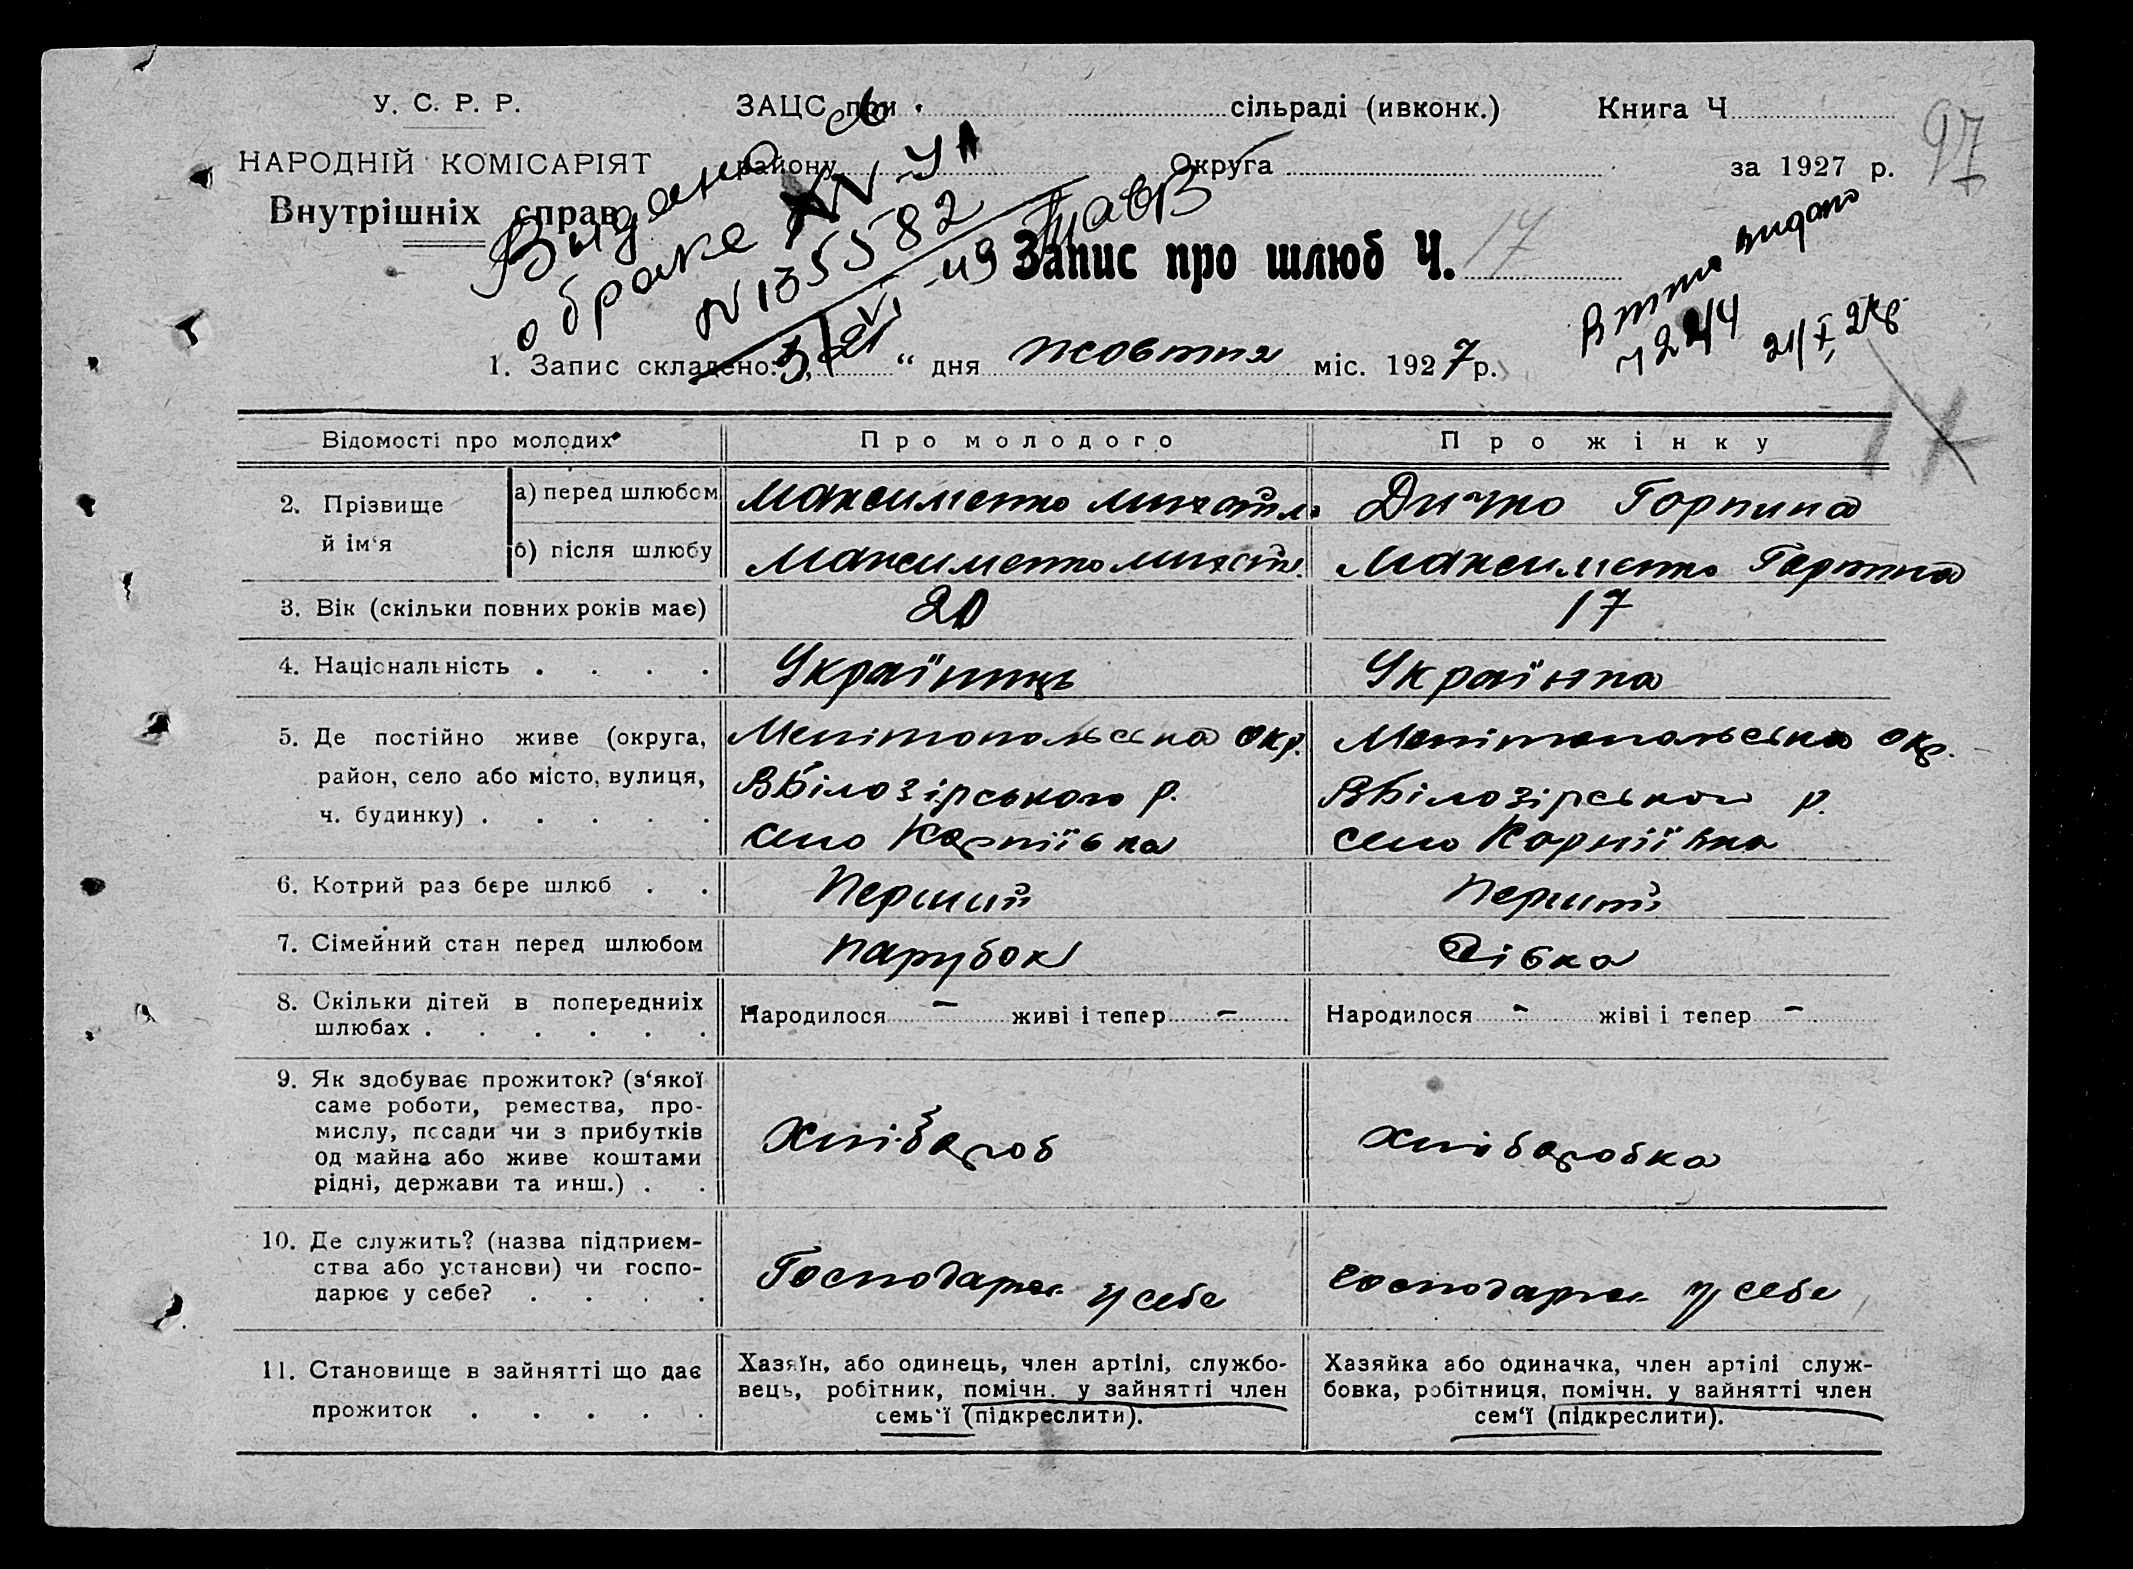 У. С. Р. Р.
ЗАЦС при сільраді (ивконк.) Книга Ч
97
НАРОДНІЙ КОМІСАРІЯТ
району Округа за 1927 р.
Внутрішніх справ
Видано
о браке
N 135582
Запис про шлюб Ч. 17
видано
1. Запис складено: „ “ дня жовтня міс. 1927 р.
17
Відомості про молодих Про молодого Про жінку
2. Прізвище й ім‘я
а) перед шлюбом Максименко Михайло Дичко Горпина
б) після шлюбу Максименко Михайл. Максименко Горпина
3. Вік (скільки повних років має) 20 17
4. Національність . . . . Українець Українка
5. Де постійно живе (округа, Мелітопольська окр. Мелітопольська окр.
район, село або місто, вулиця, ВБілозірського р. ВБілозірського р.
ч. будинку) . . . . . село Карпіївка село Карпіївка
6. Котрий раз бере шлюб . . Перший Перший
7. Сімейний стан перед шлюбом парубок Дівка
8. Скільки дітей в попередниіх Народилося – живі і тепер – Народилося – жіві і тепер –
шлюбах . . . . . .
9. Як здобуває прожиток? (з‘якої
саме роботи, ремества, про-
мислу, посади чи з прибутків Хлібароб хлібаробка
од майна або живе коштами
рідні, держави та инш.) . .
10. Де служить? (назва підприєм-
ства або установи) чи госпо- Господарює у себе господарює у себе
дарює у себе? . . . .
11. Становище в зайнятті що дає Хазяїн, або одинець, член артілі, службо- Хазяйка або одиначка, член артілі служ-
вець, робітник, помічн. у зайнятті член бовка, робітниця, помічн. у зайнятті член
прожиток . . . . . семь‘ї (підкреслити). сем‘ї (підкреслити).